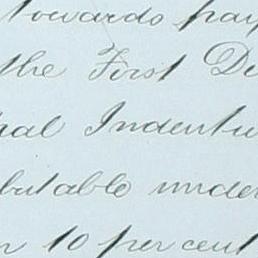 towards pay
the First De
nal Indentu
butable under
n 10 per cent